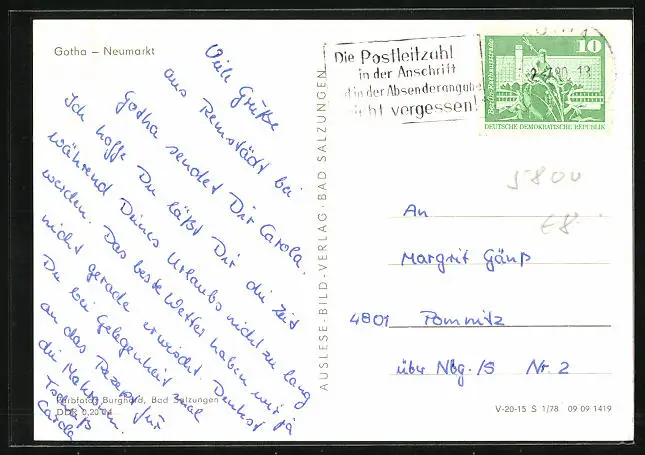 Gotha – Neumarkt
Viele Grüße
aus Remstädt bei
Gotha sendet Dir Carola.
Ich hoffe Du läßt Dir die Zeit
während Deines Urlaubs nicht zu lang
werden. Das beste Wetter haben wir ja
nicht gerade erwischt. Denkst
Du bei Gelegenheit mal
an das Rezept für
die
Tschüß
Carola
Farbfoto: Burghard, Bad Salzungen
DDR 0,20
AUSLESE-BILD-VERLAG · BAD SALZUNGEN
Die Postleitzahl
in der Anschrift
in der Absenderangabe
nicht vergessen!
10
DEUTSCHE DEMOKRATISCHE REPUBLIK
5800
E8.
An
Margrit Gänß
4801 Pomnitz
über Nbg./S Nr. 2
V-20-15 S 1/78 09 09 1419